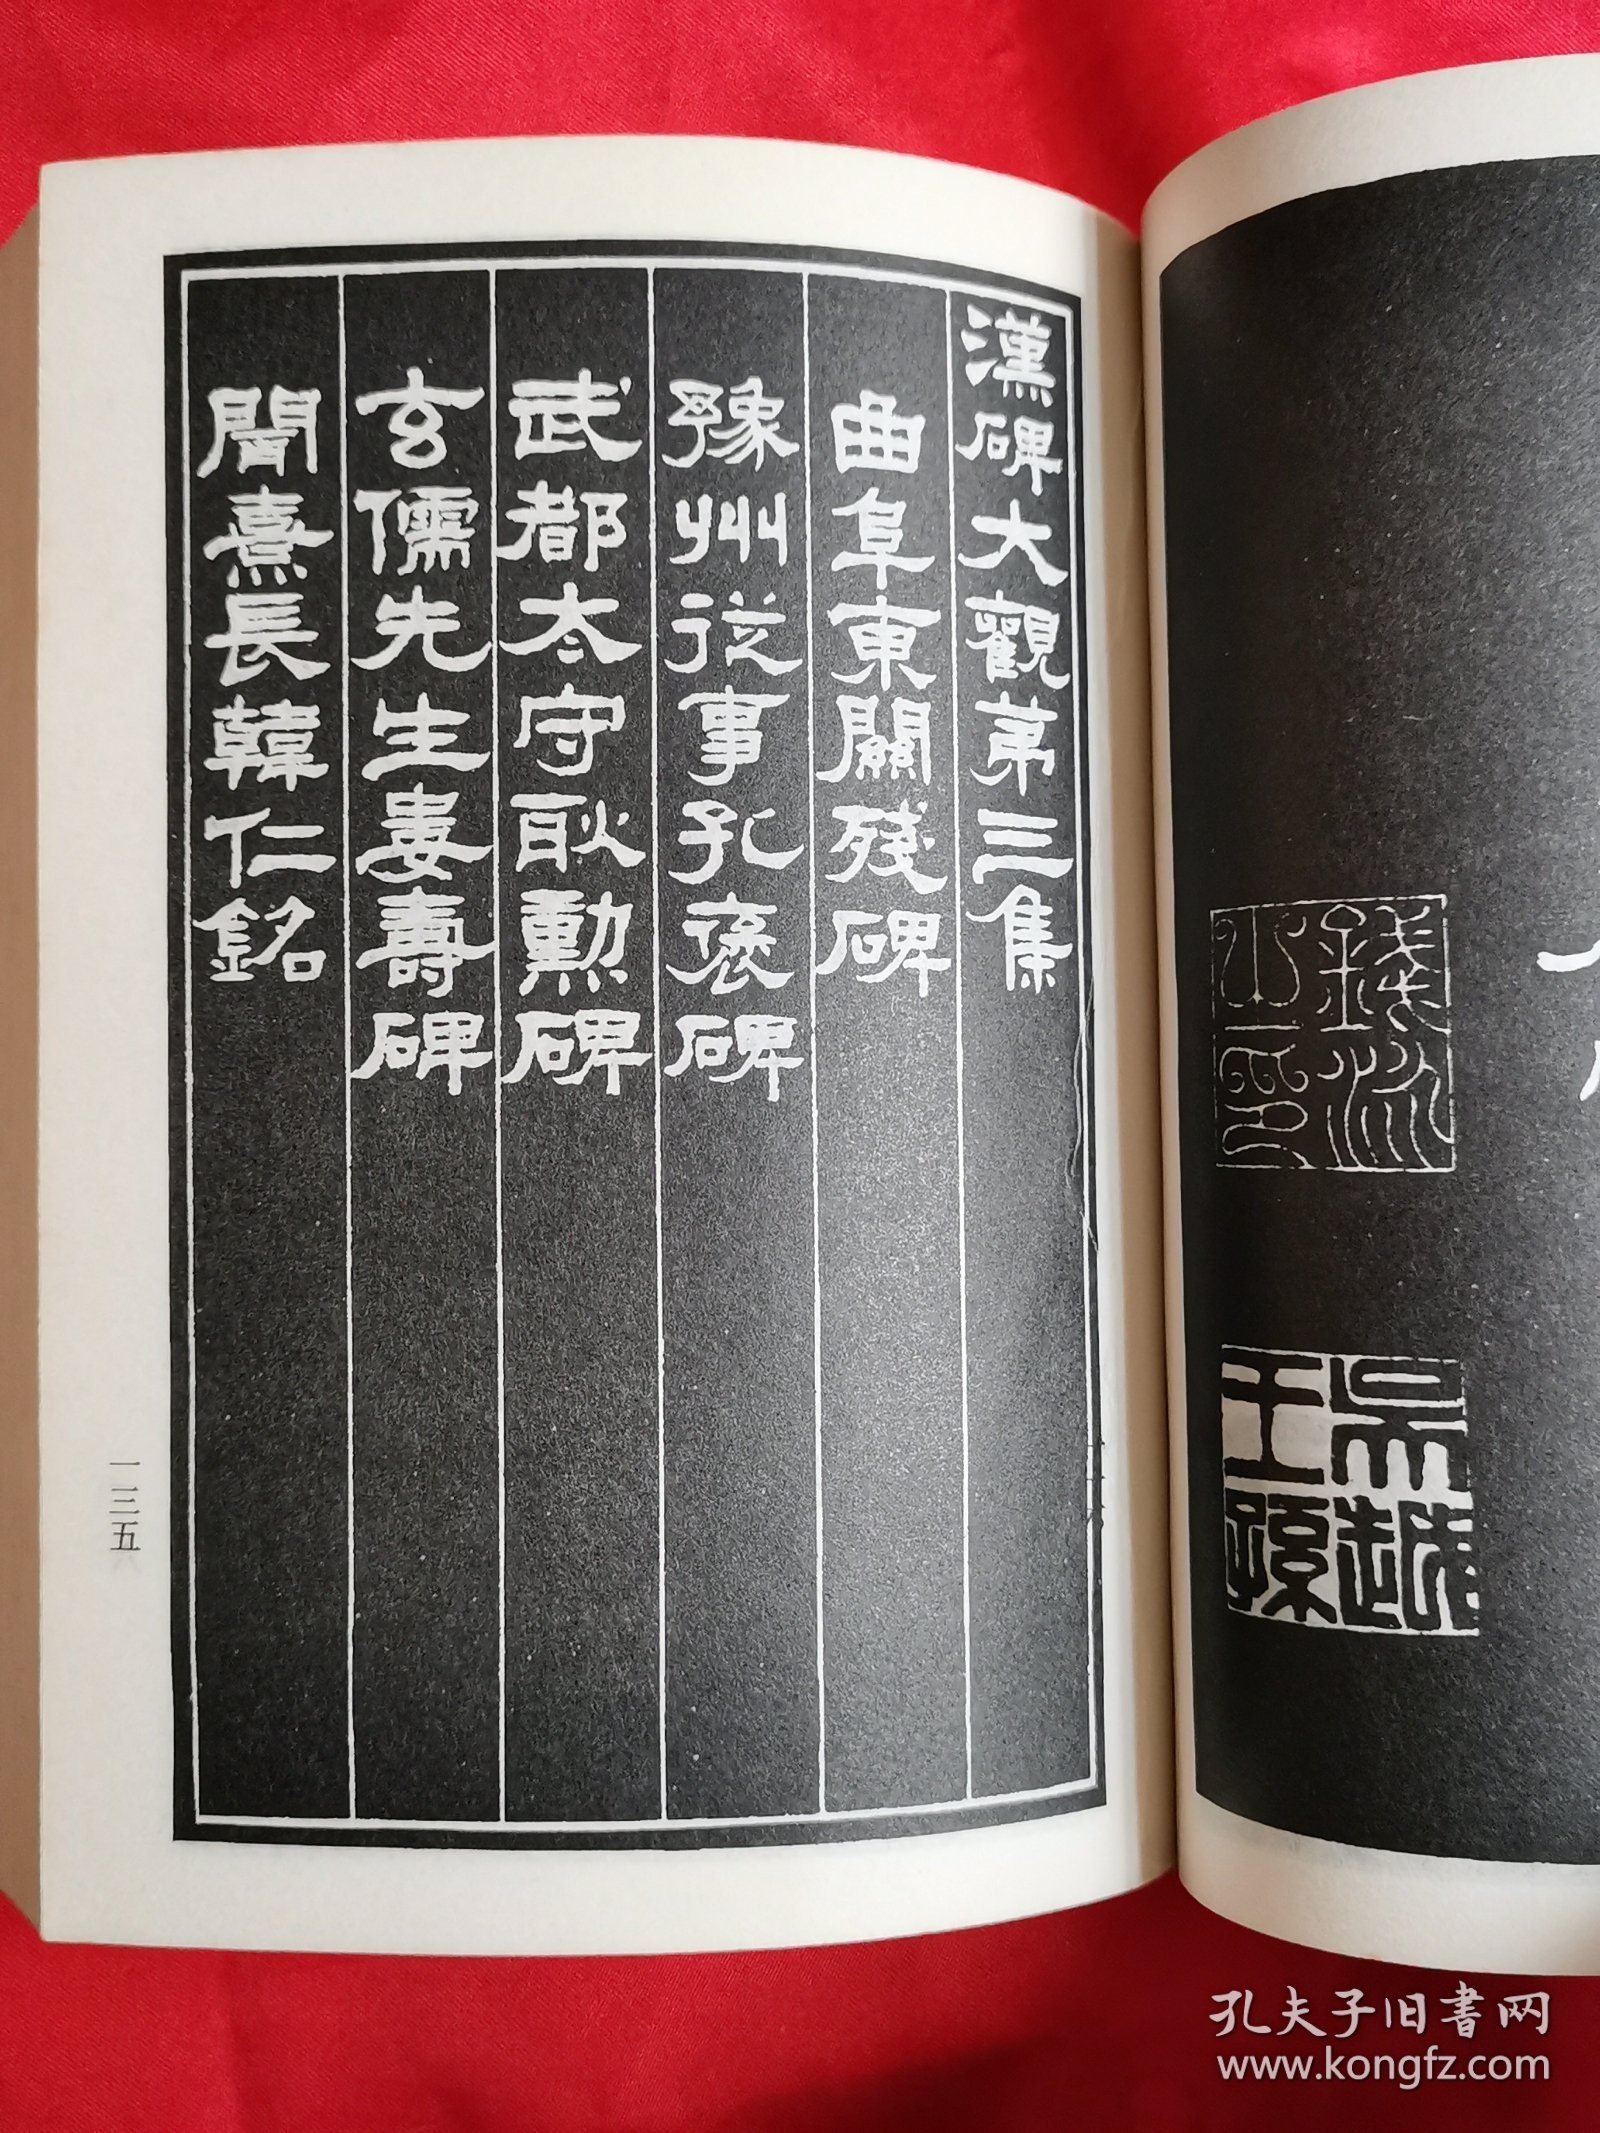 漢碑大觀第三集
曲阜東關殘碑
豫州從事孔褒碑
武都太守耿勳碑
玄儒先生婁壽碑
聞熹長韓仁銘
一三五
錢泳之印
吳越王孫
孔夫子旧書网
www.kongfz.com